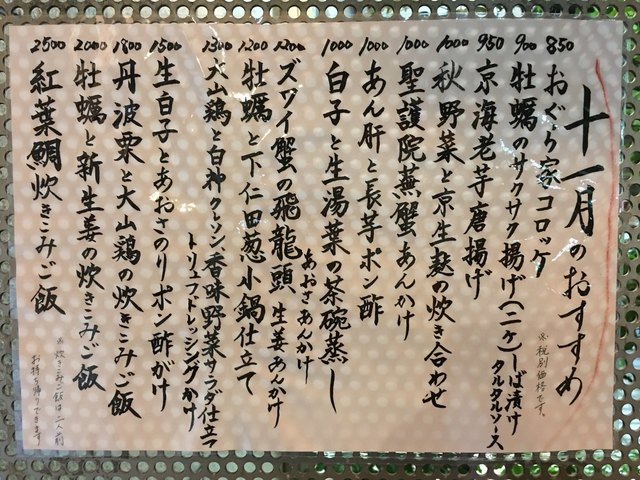 十一月のおすすめ
※税別価格です。
850 おぐら家コロッケ
900 牡蠣のサクサク揚げ(二ヶ)しば漬けタルタルソース
950 京海老芋唐揚げ
1000 秋野菜と京生麩の炊き合わせ
1000 聖護院蕪蟹あんかけ
1000 あん肝と長芋ポン酢
1000 白子と生湯葉の茶碗蒸し
あおさあんかけ
1200 ズワイ蟹の飛龍頭 生姜あんかけ
1200 牡蠣と下仁田葱小鍋仕立て
1300 大山鶏と白神クレソン香味野菜サラダ仕立て
トリュフドレッシングかけ
1500 生白子とあおさのりポン酢がけ
1800 丹波栗と大山鶏の炊きこみご飯
2000 牡蠣と新生姜の炊きこみご飯
2500 紅葉鯛炊きこみご飯
※炊きこみご飯は二人前
お持ち帰りできます